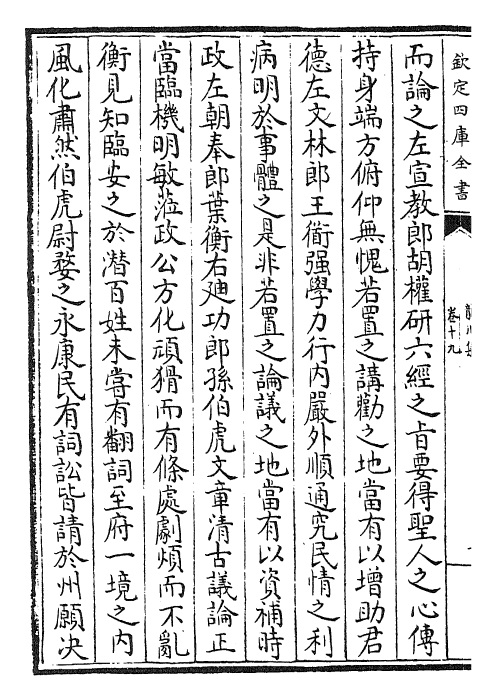 欽定四庫全書
卷十九
而論之左宣教郎胡權研六經之旨要得聖人之心傳
持身端方俯仰無愧若置之講勸之地當有以增助君
德左文林郎王衜强學力行内嚴外順通究民情之利
病明於事體之是非若置之論議之地當有以資補時
政左朝奉郎葉衡右廸功郎孫伯虎文章清古議論正
當臨機明敏蒞政公方化頑猾而有條處劇煩而不亂
衡見知臨安之於潛百姓未嘗有翻詞至府一境之内
風化肅然伯虎尉婺之永康民有詞訟皆請於州願决